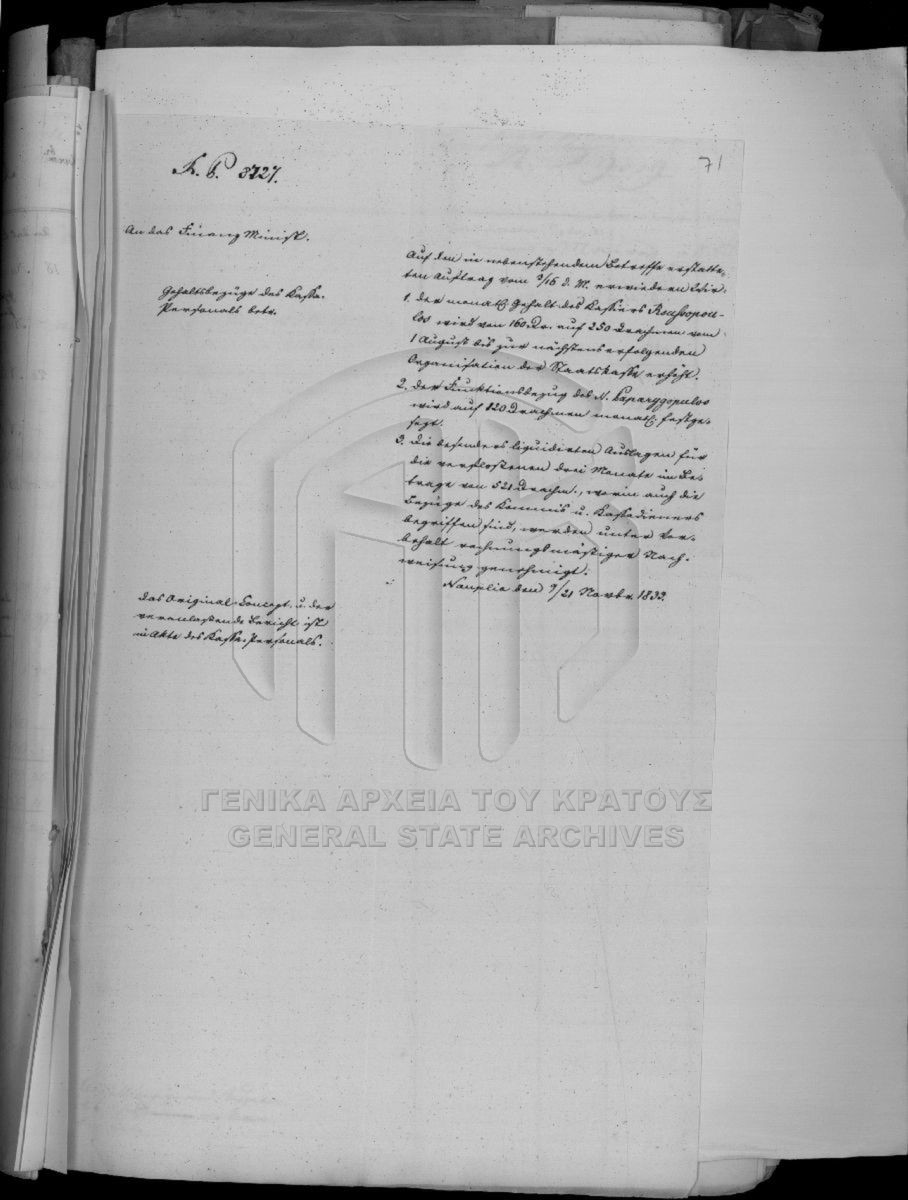 71
K. G. 3727.
An das Finanz Minist.
Gehaltsbezüge des Kasse-
Personals betr.
Auf den in nebenstehendem Betreffe erstatte-
ten Auftrag vom 3/15 d. M. erwiedern Wir:
1. der monatl. Gehalt des Kassiers Roussopou-
los wird von 160 Dr. auf 250 Drachmen vom
1 August bis zur nächstens erfolgenden
Organisation der Staatskasse erhöht.
2. der Funktionsbezug des N. Paparygopulos
wird auf 120 Drachmen monatl. festge-
sezt.
3. Die besonders liquidirten Auslagen für
die verflossenen drei Monate im Be-
trage von 521 Drachm., worin auch die
Bezüge des Kommis u. Kassadieners
begriffen sind, werden unter Vor-
behalt rechnungsmäßiger Nach-
weisung genehmigt.
Nauplia den 9/21 Novbr. 1833.
das Original-Concept u. der
veranlassende Bericht ist
im Akte des Kasse-Personals.
ΓΕΝΙΚΑ ΑΡΧΕΙΑ ΤΟΥ ΚΡΑΤΟΥΣ
GENERAL STATE ARCHIVES